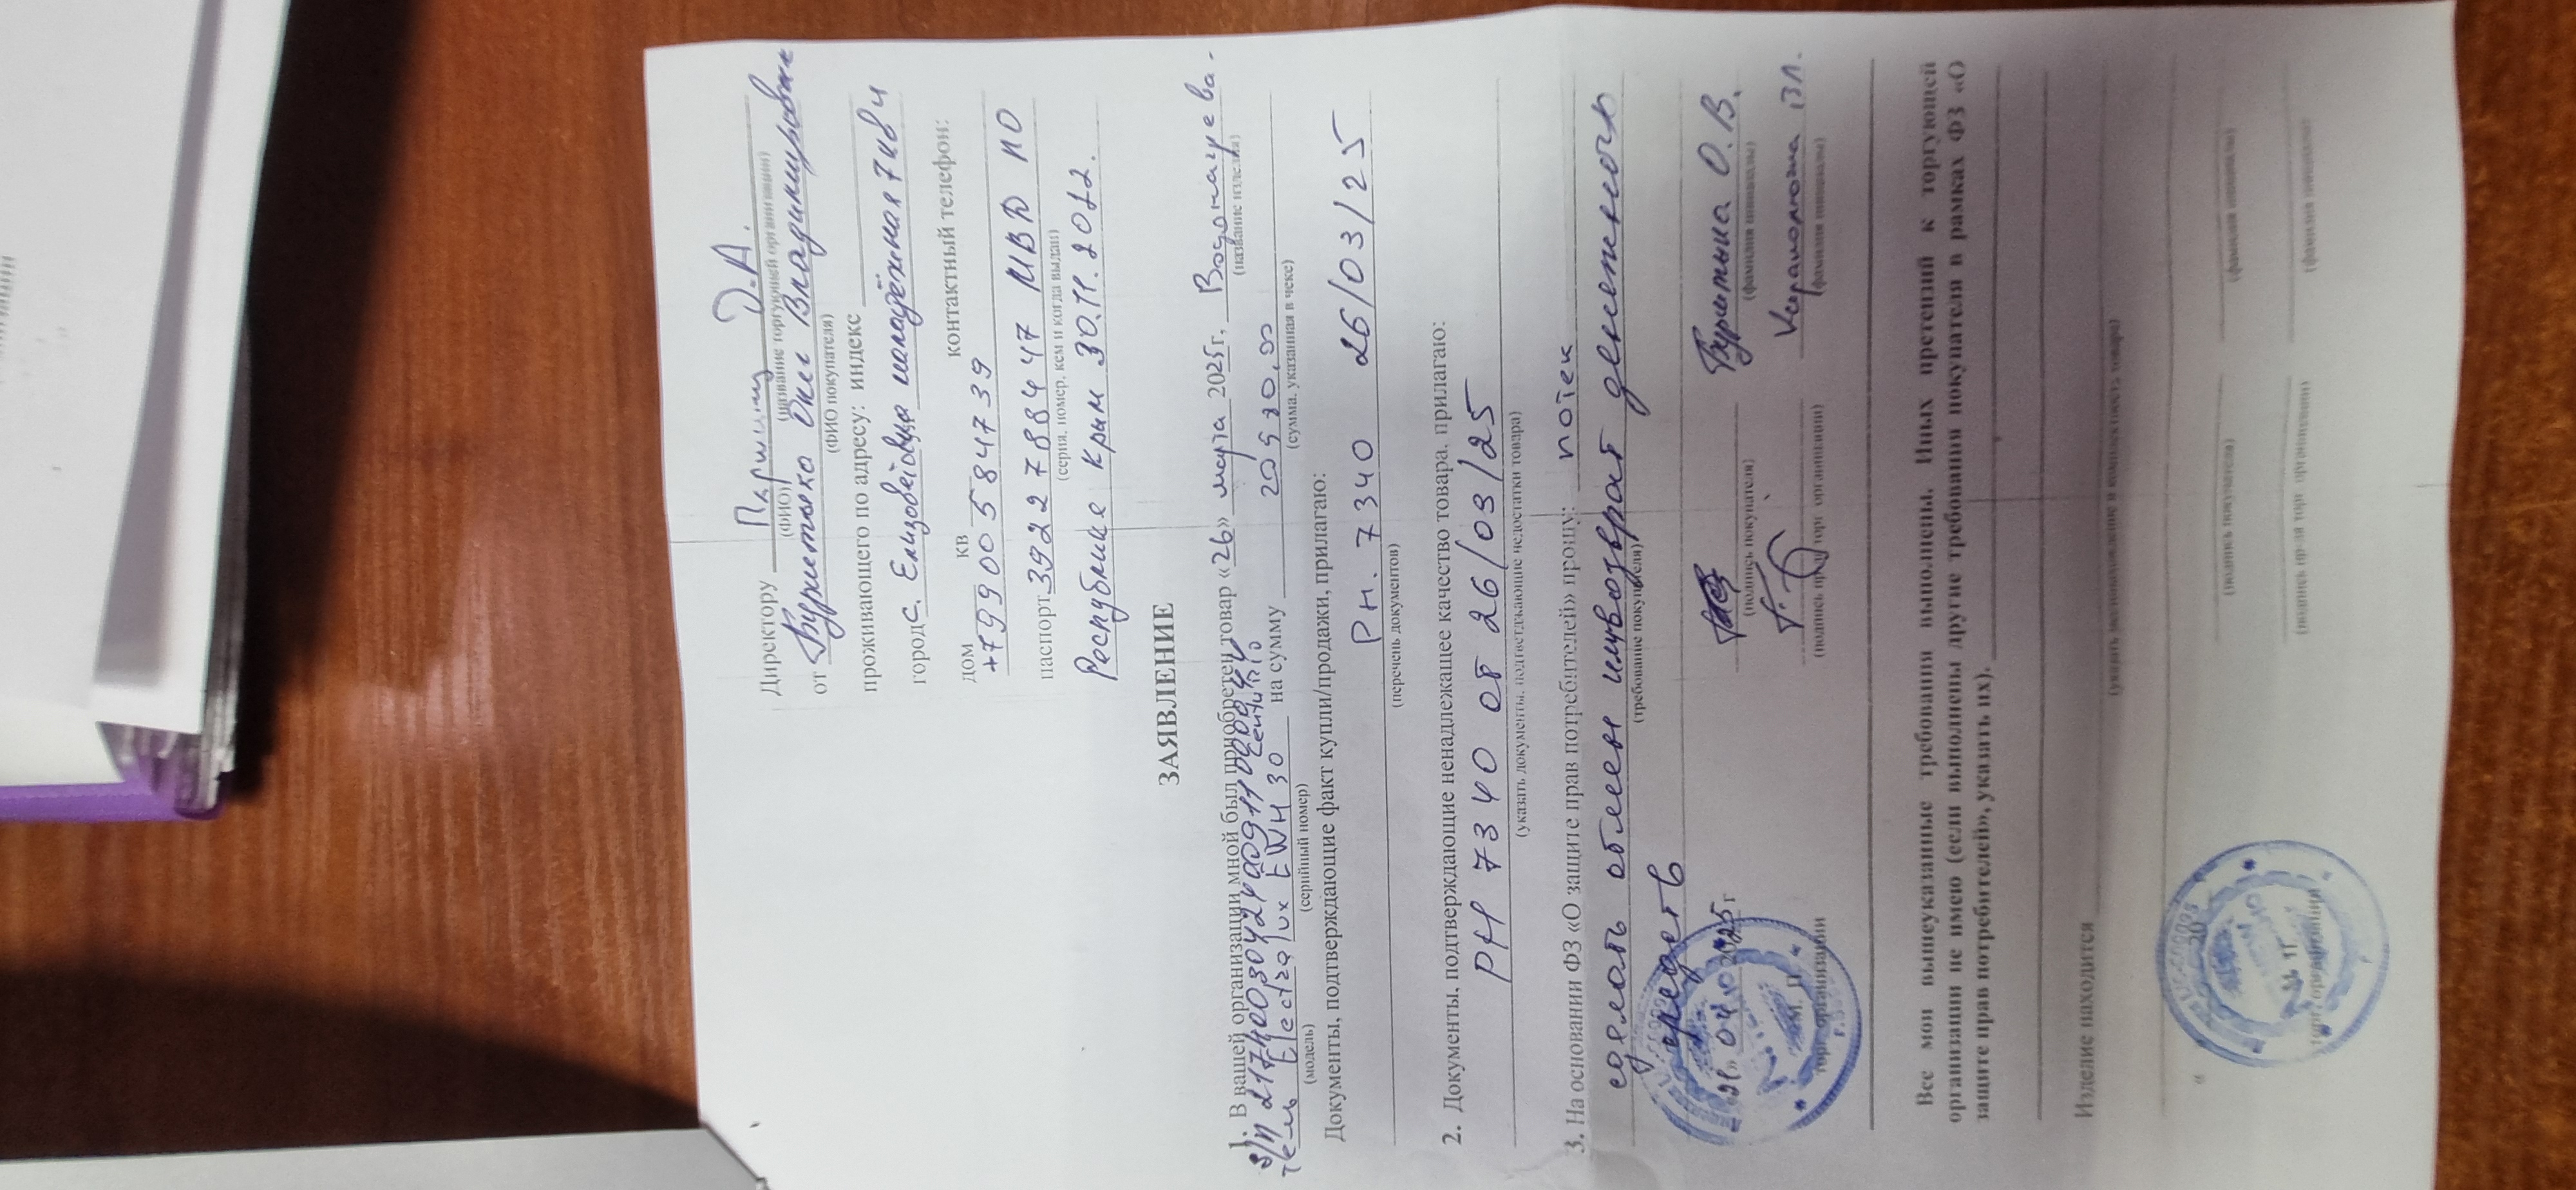 Директору Паршину Д.А.
(ФИО) (название торгующей организации)
от Бурмыка Олег Владимирович
(ФИО покупателя)
проживающего по адресу: индекс
город с. Елизоветовка молодёжная 7 кв 4
дом кв контактный телефон:
+79900 5847739
паспорт 3922788447 МВД ПО
(серия, номер, кем и когда выдан)
Республике Крым 30.11.2022.
ЗАЯВЛЕНИЕ
1. В вашей организации мной был приобретен товар «26» марта 2025г, Водонагрева-
(название изделия)
тель Electrolux EWH 30 на сумму 20 530,00
(модель) (серийный номер) (сумма, указанная в чеке)
Документы, подтверждающие факт купли/продажи, прилагаю:
РН. 7340 26/03/25
(перечень документов)
2. Документы, подтверждающие ненадлежащее качество товара, прилагаю:
РН 7340 от 26/03/25
(указать документы, подтверждающие недостатки товара)
3. На основании ФЗ «О защите прав потребителей» прошу: потек
сделать обмен или возврат денежных
(требование покупателя)
средств
Бурмыка О.В.
(подпись покупателя) (фамилия инициалы)
04 2025г
(подпись пред торг организации) (фамилия инициалы)
торг. организации
Все мои вышеуказанные требования выполнены. Иных претензий к торгующей
организации не имею (если выполнены другие требования покупателя в рамках ФЗ «О
защите прав потребителей», указать их).
Изделие находится
(указать местонахождение и комплектность товара)
(подпись покупателя) (фамилия инициалы)
(подпись пред торг организации) (фамилия инициалы)
торг. организации